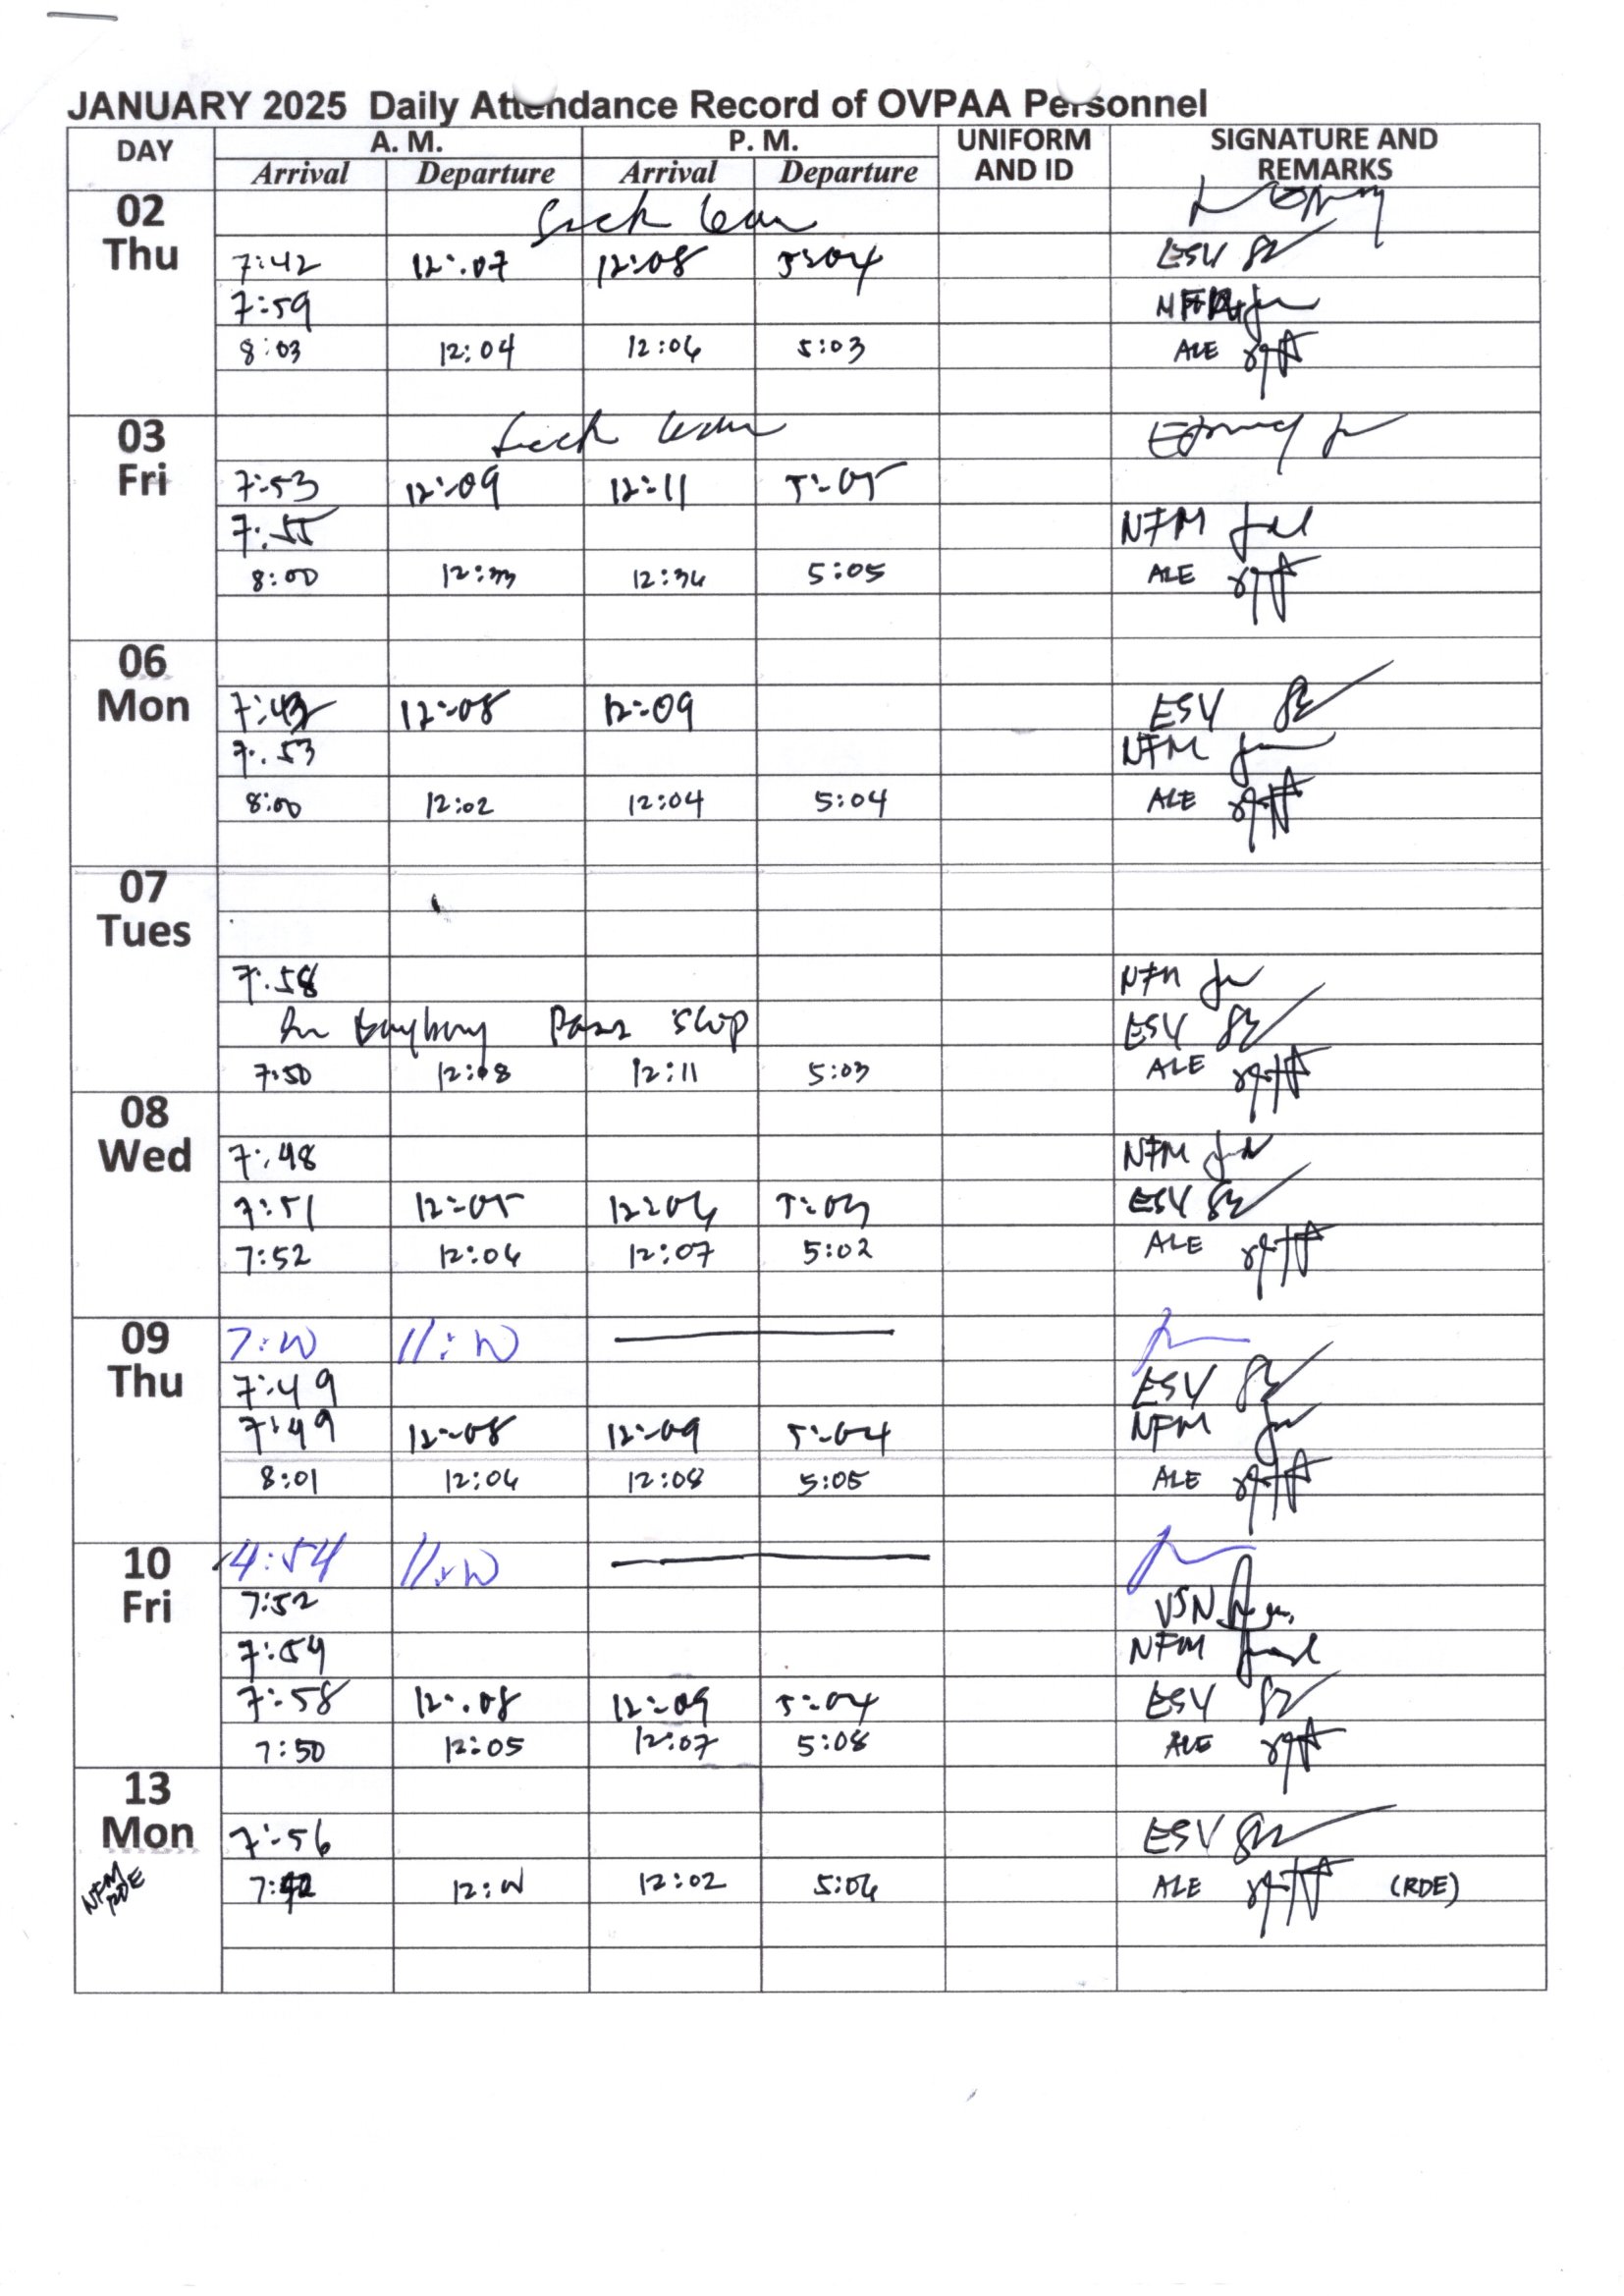 JANUARY 2025 Daily Attendance Record of OVPAA Personnel
DAY A. M. P. M. UNIFORM AND ID SIGNATURE AND REMARKS
Arrival Departure Arrival Departure
02 Thu
Sick leave
7:42 12:07 12:08 5:04 ESV
7:59
8:03 12:04 12:06 5:03 ALE
03 Fri
Sick leave
7:53 12:09 12:11 5:05
7:55 NFM
8:00 12:33 12:34 5:05 ALE
06 Mon
7:43 12:08 12:09 ESV
7:53 NFM
8:00 12:02 12:04 5:04 ALE
07 Tues
7:58 NFM
Pass slip ESV
7:50 12:08 12:11 5:03 ALE
08 Wed
7:48 NFM
7:51 12:05 12:06 5:03 ESV
7:52 12:06 12:07 5:02 ALE
09 Thu
7:00 11:00
7:49 ESV
7:49 12:08 12:09 5:04 NFM
8:01 12:06 12:08 5:05 ALE
10 Fri
4:54 11:00
7:52 VSN
7:54 NFM
7:58 12:08 12:09 5:04 ESV
7:50 12:05 12:07 5:08 ALE
13 Mon
NFM RDE
7:56 ESV
12:00 12:02 5:06 ALE (RDE)